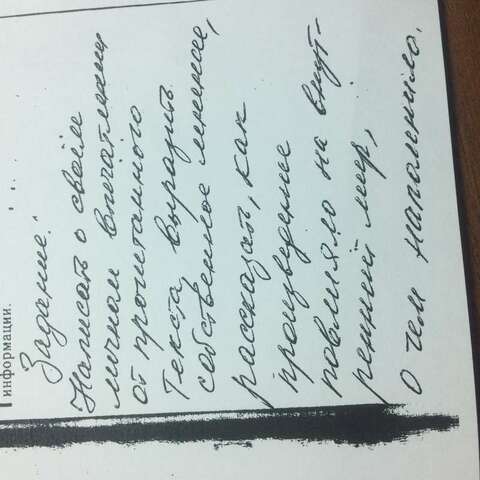 информации.
Задание:
Написать о своём
личном впечатлении
от прочитанного
текста, выразить
собственное мнение,
рассказать, как
произведение
повлияло на внут-
ренний мир,
о чем напомнило.